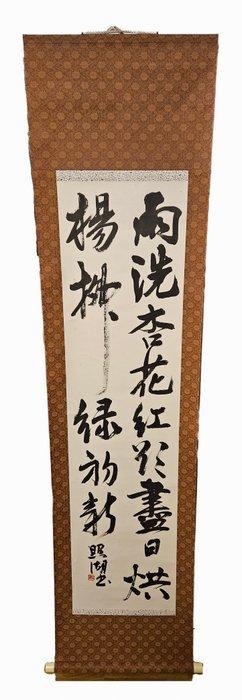 雨洗杏花紅欲盡日烘
楊柳綠初新
照湖書